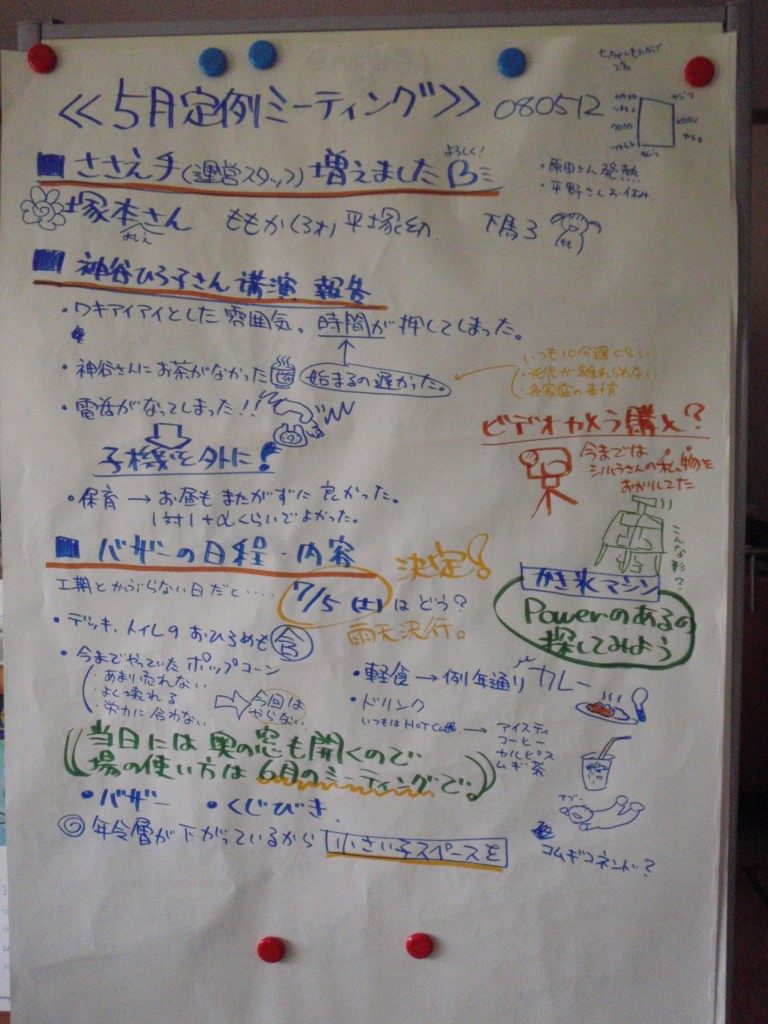 ≪5月定例ミーティング≫ 080512
■ ささえ手(運営スタッフ)増えました
よろしく!
・原田さん発熱
・平野さんお休み
塚本さん ももか(3才) 平塚幼. 下馬3
よしえ
■ 神谷ひろ子さん講演 報告
・ワキアイアイとした雰囲気。時間が押してしまった。
・神谷さんにお茶がなかった
始まるの遅かった。
いつも10分遅くらい
・各家庭の事情
・電話がなってしまった!!
子機を外に!
・保育 → お昼も またがずに 良かった。
1対1+αくらいでよかった。
ビデオカメラ購入?
今までは
シルラさんの私物を
おかりしてた
こんな形?
かき氷マシン
Powerのあるの
探してみよう
■ バザーの日程・内容
決定!
工期とかぶらない日だと‥‥ 7/5(土)はどう?
雨天決行。
・デッキ、トイレのおひろめも
・今までやっていたポップコーン
・あまり売れない
・よく壊れる
・労力に合わない
今回は
やらない
・軽食→例年通りカレー
・ドリンク
いつもはHOT Cafe →
アイスティ
コーヒー
カルピス
ムギ茶
当日には奥の窓も開くので
場の使い方は6月のミーティングで。
・バザー ・くじびき.
◎ 年令層が下がっているから 小さい子スペースを
コムギコネンド?